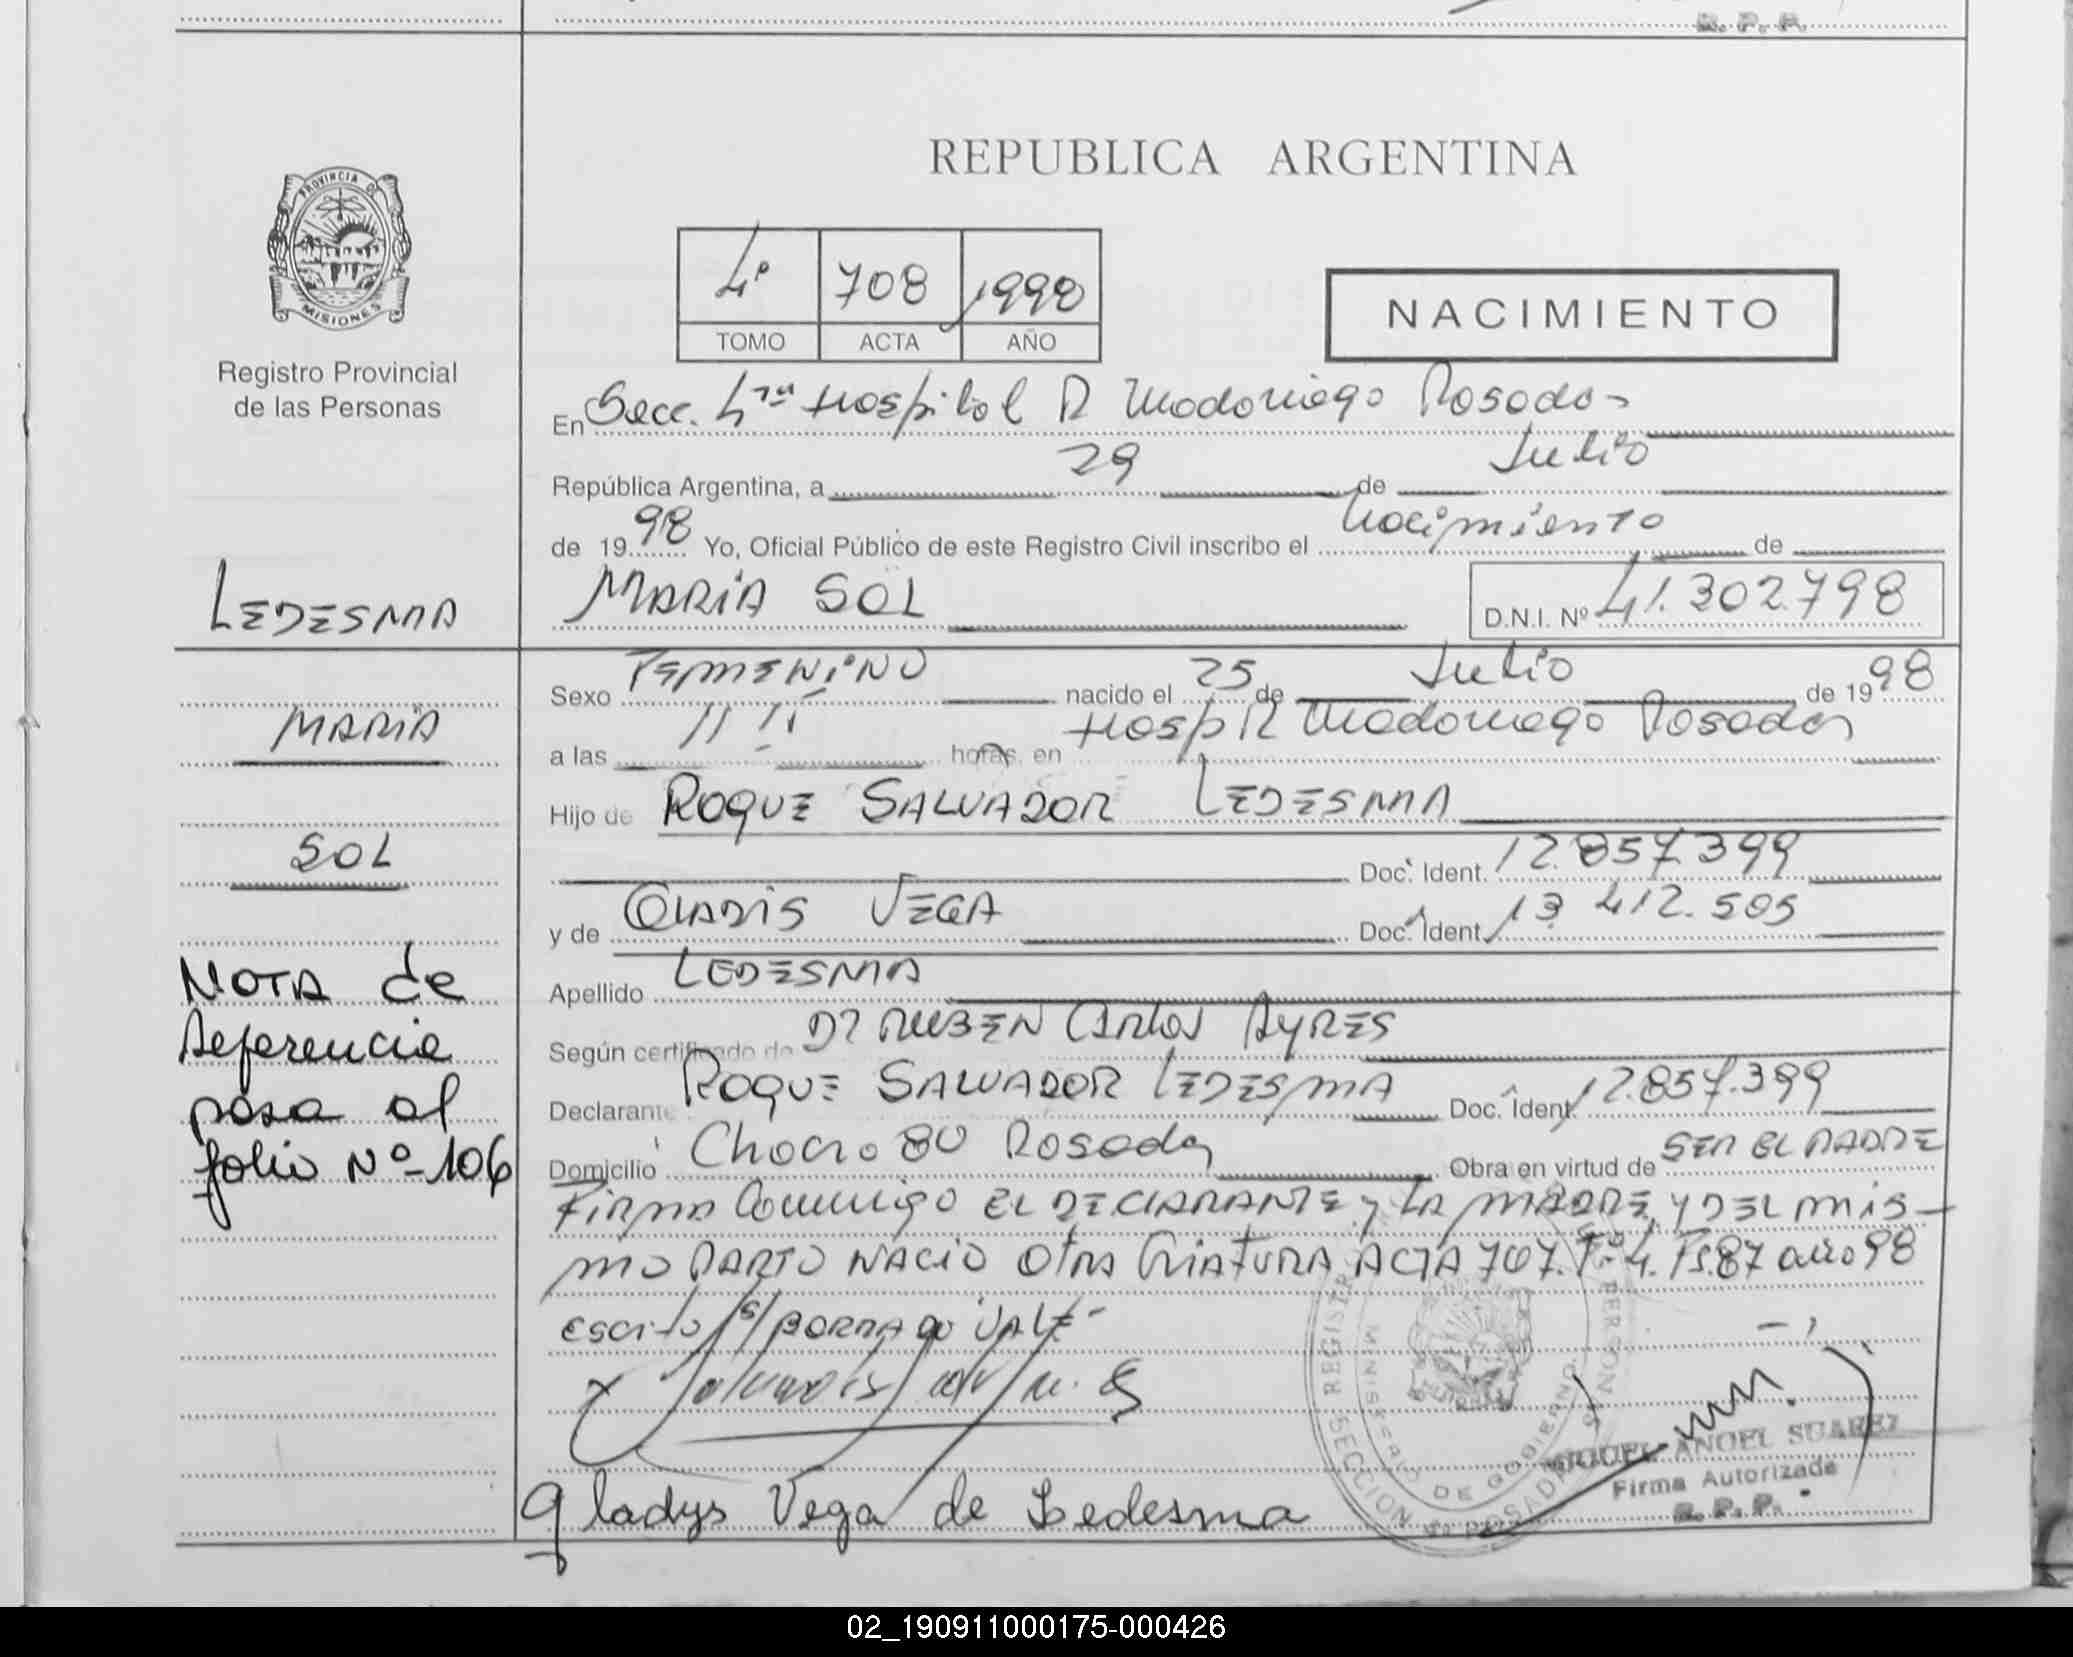 R. P. P.
REPUBLICA ARGENTINA
PROVINCIA DE
MISIONES
Registro Provincial
de las Personas
4º 708 1998
TOMO ACTA AÑO
NACIMIENTO
En Secc. 4ta Hospital R Madariaga Posadas
República Argentina, a 29 de Julio
de 1998 Yo, Oficial Público de este Registro Civil inscribo el nacimiento de
LEDESMA
MARIA SOL D.N.I. Nº 41.302.798
Sexo FEMENINO nacido el 25 de Julio de 1998
MARIA
a las 11 horas, en Hosp R Madariaga Posadas
Hijo de ROQUE SALVADOR LEDESMA
SOL
Doc. Ident. 12.857.399
y de GLADIS VEGA Doc. Ident. 13 412.505
Apellido LEDESMA
NOTA de
Referencia
pasa al
folio Nº 106
Según certificado de Dr RUBEN Carlos AYRES
Declarante ROQUE SALVADOR LEDESMA Doc. Ident. 12.857.399
Domicilio Chacra 80 Posadas Obra en virtud de SER EL PADRE
Firma Conmigo EL DECLARANTE y LA MADRE, Y DEL MIS-
MO PARTO NACIO OTRA CRIATURA ACTA 707. Tº 4. Fs. 87 año 98
escrito s/ BORRADO VALE-
Gladys Vega de Ledesma
MIGUEL ANGEL SUAREZ
Firma Autorizada
R. P. P.
02_190911000175-000426